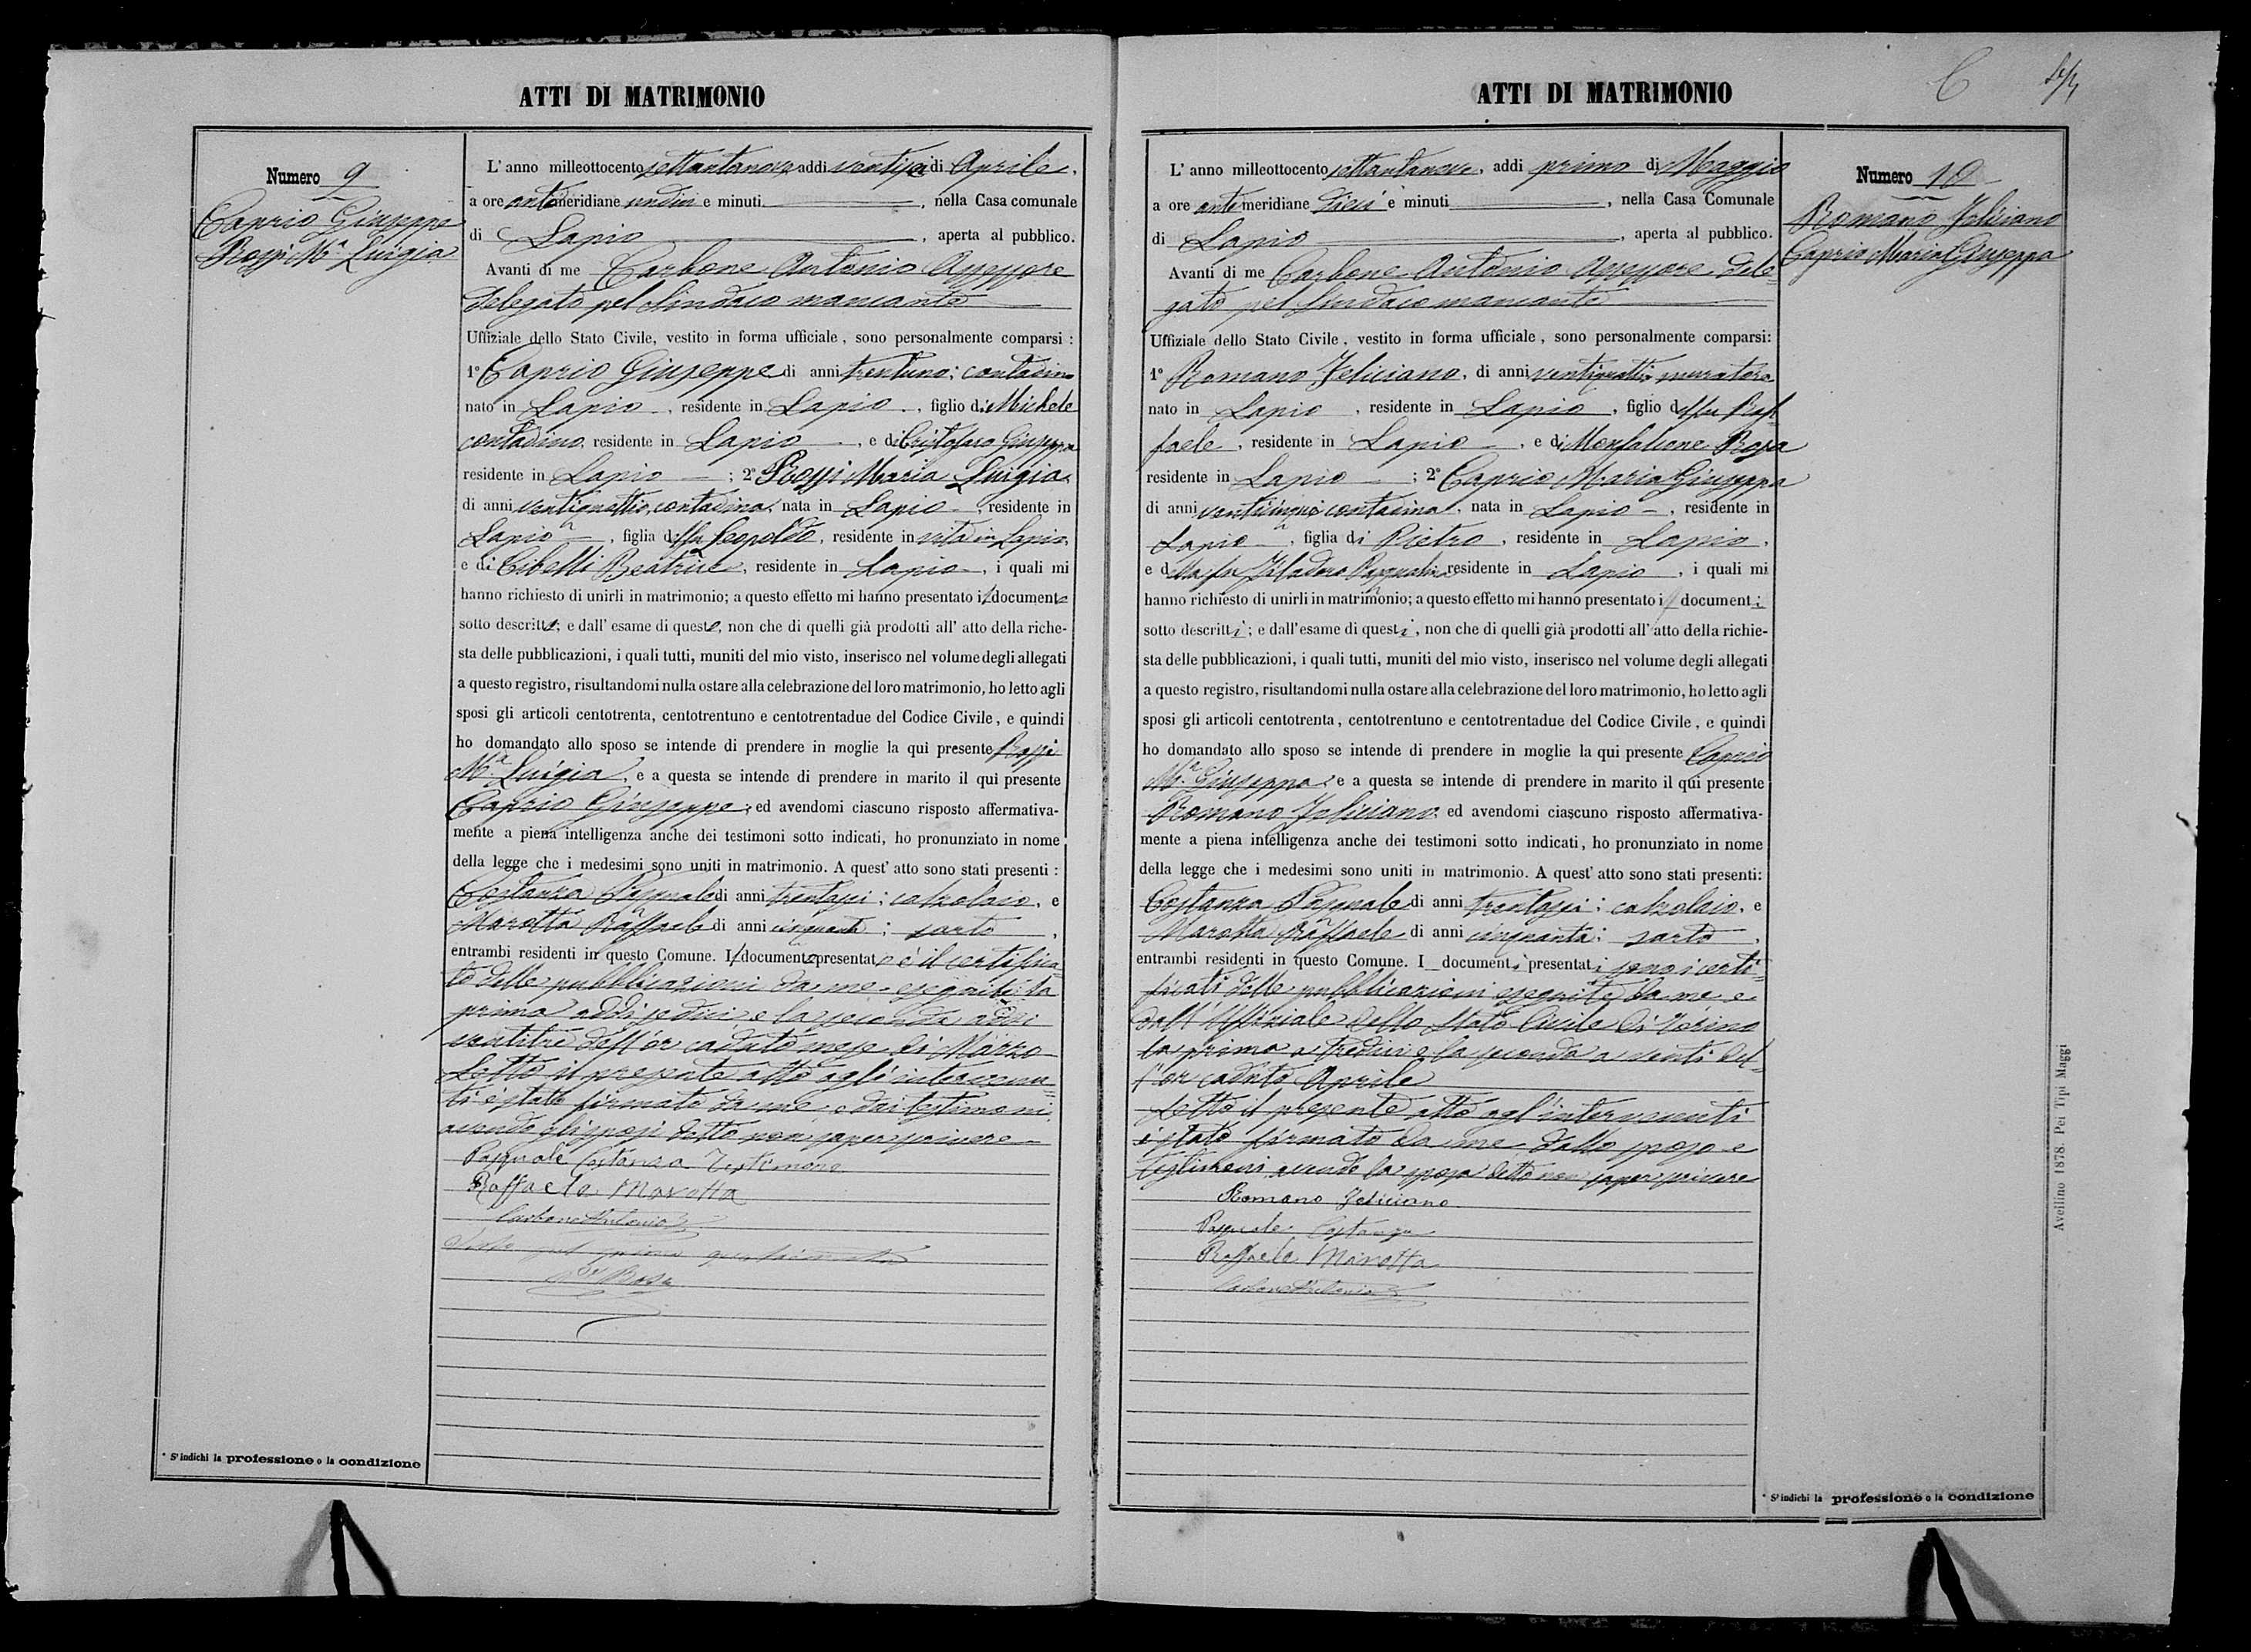 ATTI DI MATRIMONIO
Numero 9
Caprio Giuseppe
Rossi M.a Luigia
L' anno milleottocento settantanove, addi ventisei di Aprile,
a ore antimeridiane undici e minuti , nella Casa comunale
di Lapio , aperta al pubblico.
Avanti di me Carbone Antonio Assessore
Delegato pel Sindaco mancante
Uffiziale dello Stato Civile, vestito in forma ufficiale, sono personalmente comparsi :
1° Caprio Giuseppe di anni trentuno; contadino
nato in Lapio , residente in Lapio , figlio di Michele
contadino, residente in Lapio , e di Cristofaro Giuseppa
residente in Lapio ; 2° Rossi Maria Luigia
di anni ventiquattro, contadina, nata in Lapio , residente in
Lapio , figlia del fu Leopoldo, residente in vita in Lapio,
e di Cibelli Beatrice, residente in Lapio , i quali mi
hanno richiesto di unirli in matrimonio; a questo effetto mi hanno presentato il documento
sotto descritto; e dall' esame di questo, non che di quelli già prodotti all' atto della riche-
sta delle pubblicazioni, i quali tutti, muniti del mio visto, inserisco nel volume degli allegati
a questo registro, risultandomi nulla ostare alla celebrazione del loro matrimonio, ho letto agli
sposi gli articoli centotrenta, centotrentuno e centotrentadue del Codice Civile, e quindi
ho domandato allo sposo se intende di prendere in moglie la quì presente Rossi
M.a Luigia, e a questa se intende di prendere in marito il quì presente
Caprio Giuseppe; ed avendomi ciascuno risposto affermativa-
mente a piena intelligenza anche dei testimoni sotto indicati, ho pronunziato in nome
della legge che i medesimi sono uniti in matrimonio. A quest' atto sono stati presenti :
Costanza Pasquale di anni trentasei; calzolaio, e
Marotta Raffaele di anni cinquanta; sarto ,
entrambi residenti in questo Comune. Il documento presentato è il certifica-
to delle pubblicazioni da me eseguite la
prima addi sedici e la seconda addi
ventitre dell'or caduto mese di Marzo
Letto il presente atto agli intervenu-
ti è stato firmato da me e dai testimoni
avendo gli sposi detto non saper scrivere
Pasquale Costanza Testimone
Raffaele Marotta
Carbone Antonio
* S' indichi la professione o la condizione
ATTI DI MATRIMONIO
Numero 10
Romano Feliciano
Caprio Maria Giuseppa
L' anno milleottocento settantanove, addi primo di Maggio
a ore antimeridiane dieci e minuti , nella Casa Comunale
di Lapio , aperta al pubblico.
Avanti di me Carbone Antonio Assessore Dele-
gato pel Sindaco mancante
Uffiziale dello Stato Civile, vestito in forma ufficiale, sono personalmente comparsi:
1° Romano Feliciano, di anni ventiquattro, muratore
nato in Lapio , residente in Lapio , figlio del fu Raf-
faele, residente in Lapio , e di Monfalcone Rosa
residente in Lapio ; 2° Caprio Maria Giuseppa
di anni venticinque contadina, nata in Lapio , residente in
Lapio , figlia di Pietro , residente in Lapio ,
e della fu residente in Lapio , i quali mi
hanno richiesto di unirli in matrimonio; a questo effetto mi hanno presentato i documenti
sotto descritti; e dall' esame di questi, non che di quelli già prodotti all' atto della richie-
sta delle pubblicazioni, i quali tutti, muniti del mio visto, inserisco nel volume degli allegati
a questo registro, risultandomi nulla ostare alla celebrazione del loro matrimonio, ho letto agli
sposi gli articoli centotrenta, centotrentuno e centotrentadue del Codice Civile, e quindi
ho domandato allo sposo se intende di prendere in moglie la quì presente Caprio
M.a Giuseppa, e a questa se intende di prendere in marito il quì presente
Romano Feliciano; ed avendomi ciascuno risposto affermativa-
mente a piena intelligenza anche dei testimoni sotto indicati, ho pronunziato in nome
della legge che i medesimi sono uniti in matrimonio. A quest' atto sono stati presenti:
Costanza Pasquale di anni trentasei; calzolaio, e
Marotta Raffaele di anni cinquanta; sarto ,
entrambi residenti in questo Comune. I documenti presentati sono i certi-
ficati delle pubblicazioni eseguite da me e
dall' Uffiziale dello Stato Civile di Torino
la prima a tredici e la seconda a venti del-
l'or caduto Aprile
Letto il presente atto agl'intervenuti
è stato firmato da me, dallo sposo e
testimoni avendo la sposa detto non saper scrivere
Romano Feliciano
Pasquale Costanza
Raffaele Marotta
Carbone Antonio
* S' indichi la professione o la condizione
Avellino 1878. Pei Tipi Maggi